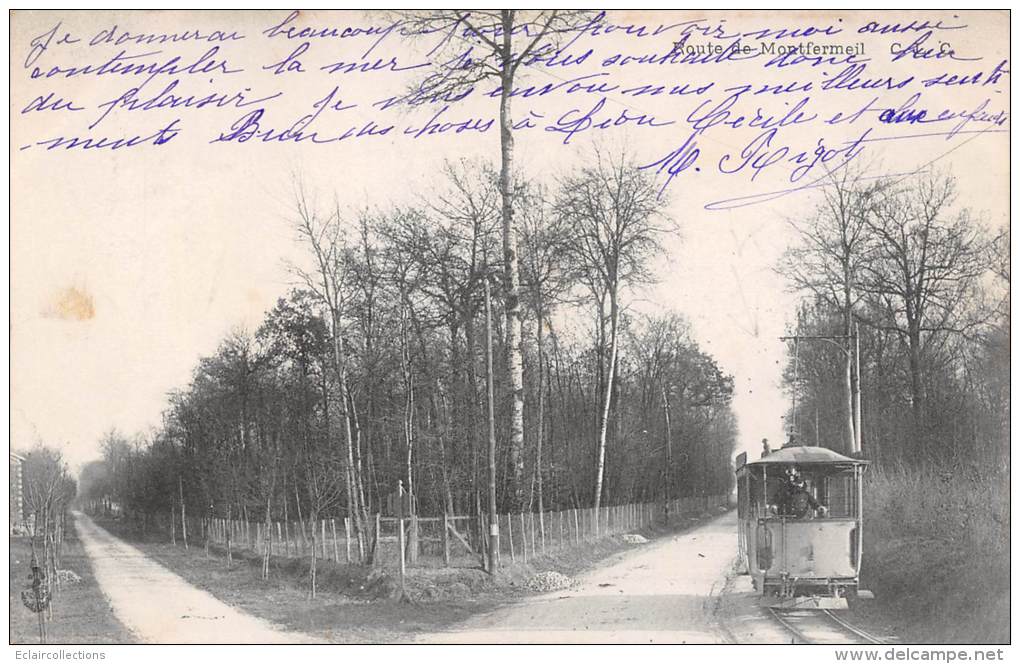 Je donnerai beaucoup pour pouvoir moi aussi
Route de Montfermeil C. L. C.
contempler la mer je vous souhaite donc bien
du plaisir Je vous envoi mes meilleurs senti
-ments Bien des choses à Léon Cécile et aux enfants
M. Rigot
Eclaircollections
www.delcampe.net